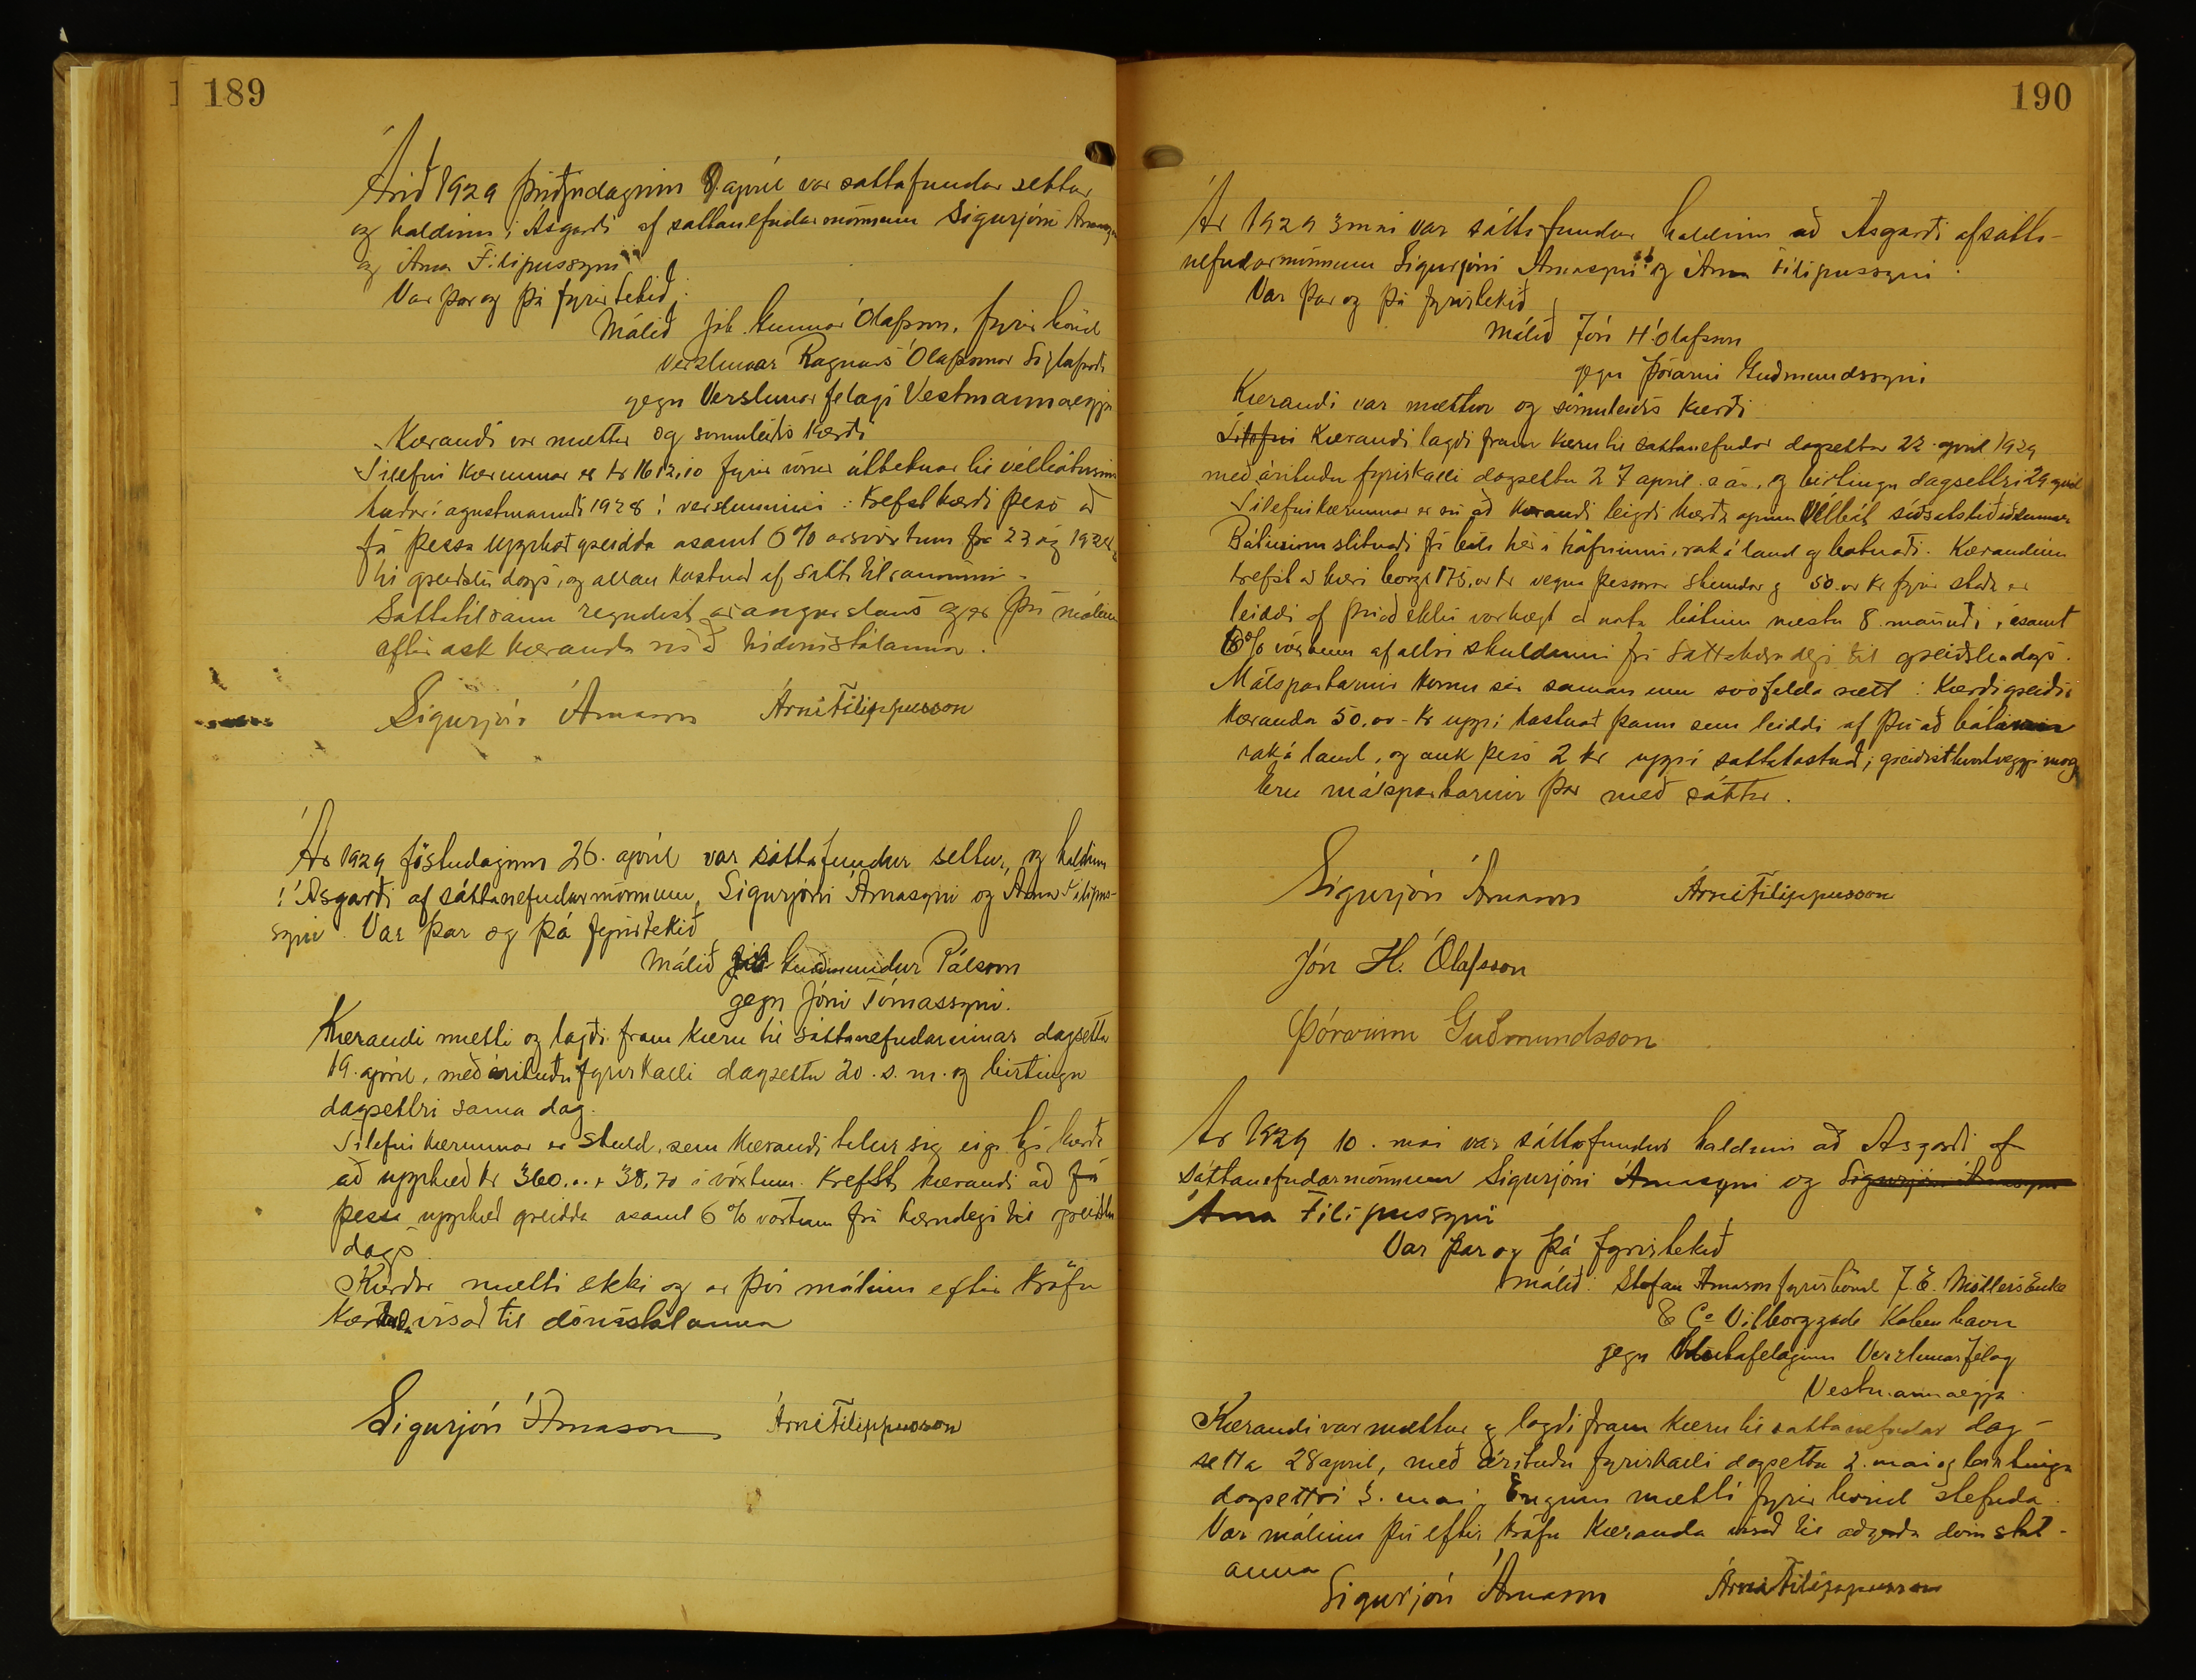 189
Árið 1929 þriðjudaginn 9. apríl var sattafundur settur
og haldinn í Asgarði af sattanefndarmönnum Sigurjóni Árnasyni
og Árna Filipussyni
Var þar og þá fyrirtekið
Málið Gunnar Ólafsson, fyrir hönd
verslunar Ragnars Ólafssonar
gegn Verslunarfelagi Vestmannaeyja
Kærandi var mættur og sömuleiðis kærði
Tilefni kærunnar er kr 1612,10 fyrir
1928 í versluninni: krefst kærði þess að
fá þessa upphæð greidda asamt 6% arsvöxtum frá 23 ág 1928
til greiðslu dags, og allan kostnað af sattatilrauninni.
Sattatilraun reyndist árangurslaus og er því málinu
eftir ósk kæranda vísað til dómstólanna.
Sigurjón Árnason Árni Filippusson
Ár 1929 föstudaginn 26. apríl var sáttafundur settur, og haldinn
í Ásgarði af sáttanefndarmönnum, Sigurjóni Árnasyni og Árna Filipus-
syni. Var þar og þá fyrirtekið
Málið Guðmundur Pálsson
gegn Jóni Tómassyni.
Kærandi mætti og lagði fram kæru til sáttanefndarinnar dagsetta
19. apríl, með árituðu fyrirkalli dagsettu 20. s. m. og birtingu
dagsettri sama dag.
Tilefni kærunnar er skuld, sem kærandi telur sig eiga hjá kærða
að upphæð kr 360.00 + 38,70 í vöxtum. Krefst kærandi að fá
þessa upphæð greidda asamt 6% vöxtum frá kærudegi til greiðslu
dags
Kærður mætti ekki og er því málinu eftir kröfu
kæranda vísað til dómstólanna
Sigurjón Árnason Árni Filippusson
190
Ár 1929 3 mai var sátta fundur haldinn að Ásgarði af sátta-
nefndarmönnum Sigurjóni Árnasyni og Árna Filipussyni.
Var þar og þá fyrirtekið
Málið Jón H. Ólafsson
gegn Þórarni Guðmundssyni
Kærandi var mættur og sömuleiðis kærði
Kærandi lagði fram kæru til sattanefndar dagsettar 22. apríl 1929
með árituðu fyrirkalli dagsettu 27 apríl. s. ár, og birtingu dagsettri 29 apríl
Tilefni kærunnar er sú að kærandi leigði kærða
Báturinn slitnaði frá hér í höfninni, rak á land og brotnaði. Kærandinn
krefst að kærði borgi 175,00 kr vegna þessarar skemdar og 50.00 kr fyrir skaða er
leiddi af því að ekki var hægt að nota bátinn næstu 8. mánuði, ásamt
6% vöxtum af allri skuldinni frá sáttakæru degi til greiðsludags.
Málspartarnir komu sér saman um svofelda sætt: Kærði greiði
kæranda 50,00 - kr uppí kostnað þann sem leiddi af því að báturinn
rak á land, og auk þess 2 kr uppí sattakostnað,
Eru málspartarnir þar með sáttir.
Sigurjón Árnason Árni Filippusson
Jón H. Ólafsson
Þórarinn Guðmundsson
Ár 1929 10. mai var sáttafundur haldinn að Asgarði af
sáttanefndarmönnum Sigurjóni Árnasyni og Sigurjóni Árnasyni
Árna Filipussyni
Var þar og þá fyrirtekið
málið: Stefan Arnason fyrir hönd J. E. Möllers Enke
& Co Vilborggade Kobenhavn
gegn Hlutafelaginu Verzlunarfélag
Vestmannaeyja.
Kærandi var mættur og lagði fram kæru til sattanefndar dag-
setta 28 apríl, með árituðu fyrirkalli dagsettu 2. mai og birtingu
dagsettri 3. mai. Enginn mætti fyrir hönd stefnda.
Var málinu því eftir kröfu Kæranda vísað til aðgerða dómstól-
anna
Sigurjón Árnason Árni Filippusson